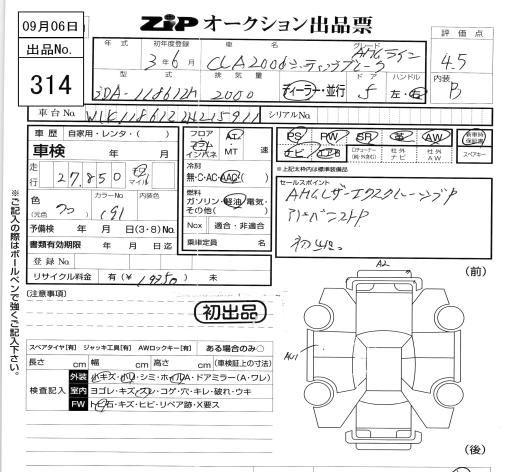 09月06日
出品No.
314
ZiP オークション出品票
年式 初年度登録 車名 グレード 評価点
3年6月 CLA200dシューティングブレーク AMGライン 4.5
型式 排気量 ドア ハンドル 内装
3DA-118612M 2000 ディーラー・並行 5 左・右 B
車台No. シリアルNo.
車歴 自家用・レンタ・( )
車検 年 月
走行 27,850 km マイル
色 カラーNo. 内装色
(元色 クロ ) 191
予備検 年 月 日(3・8)No.
書類有効期限 年 月 日迄
登録No.
リサイクル料金 有(¥ 19950 ) 未
フロア AT
コラム
インパネ ・MT 速
冷房
無・C・AC・AAC
燃料
ガソリン・軽油・電気・
その他( )
Nox 適合・非適合
乗車定員 名
PS PW SR 革 AW 新車時保証書
ナビ エアB 社外ナビ 社外AW スペアキー
※上記太枠内は標準装備品
セールスポイント
AMGレザーエクスクルーシブP
アドバンストP
初出品
※ご記入の際はボールペンで強くご記入下さい。
(注意事項)
初出品
スペアタイヤ[有] ジャッキ工具[有] AWロックキー[有] ある場合のみ○
長さ cm 幅 cm 高さ cm (車検証上の寸法)
検査記入
外装 小キズ・小凹・シミ・ホイルA・ドアミラー(A・ワレ)
室内 ヨゴレ・キズ・スレ・コゲ・穴・キレ・破れ・ウキ
FW トビ石・キズ・ヒビ・リペア跡・X要ス
(前)
A2
AU1
(後)